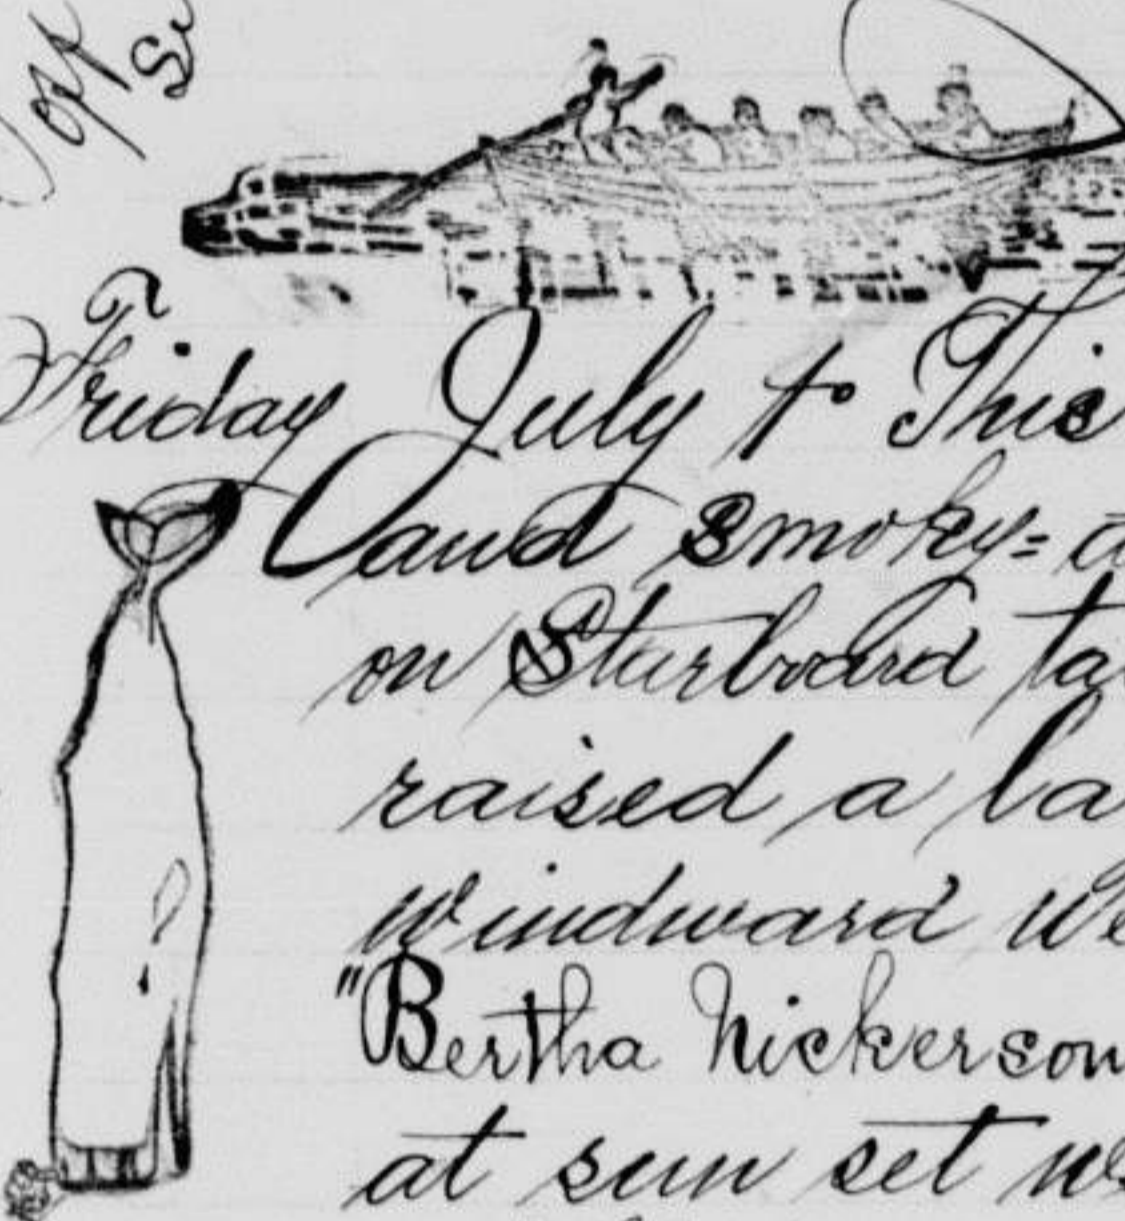 Friday July This
and smoky=
on Starboard ta
raised a ba
windward we
"Bertha Nickerson
at sun set w